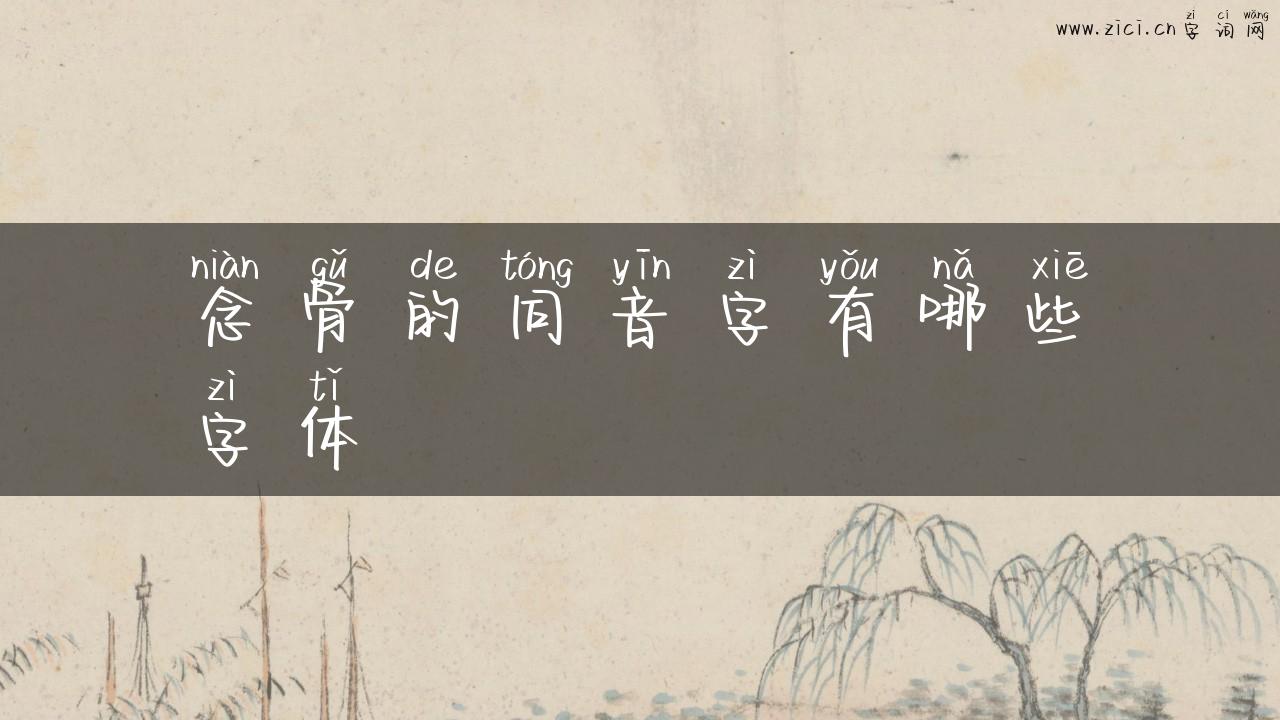 zì cí wǎng
www.zici.cn 字 词 网
niàn gǔ de tóng yīn zì yǒu nǎ xiē
念 骨 的 同 音 字 有 哪 些
zì tǐ
字 体